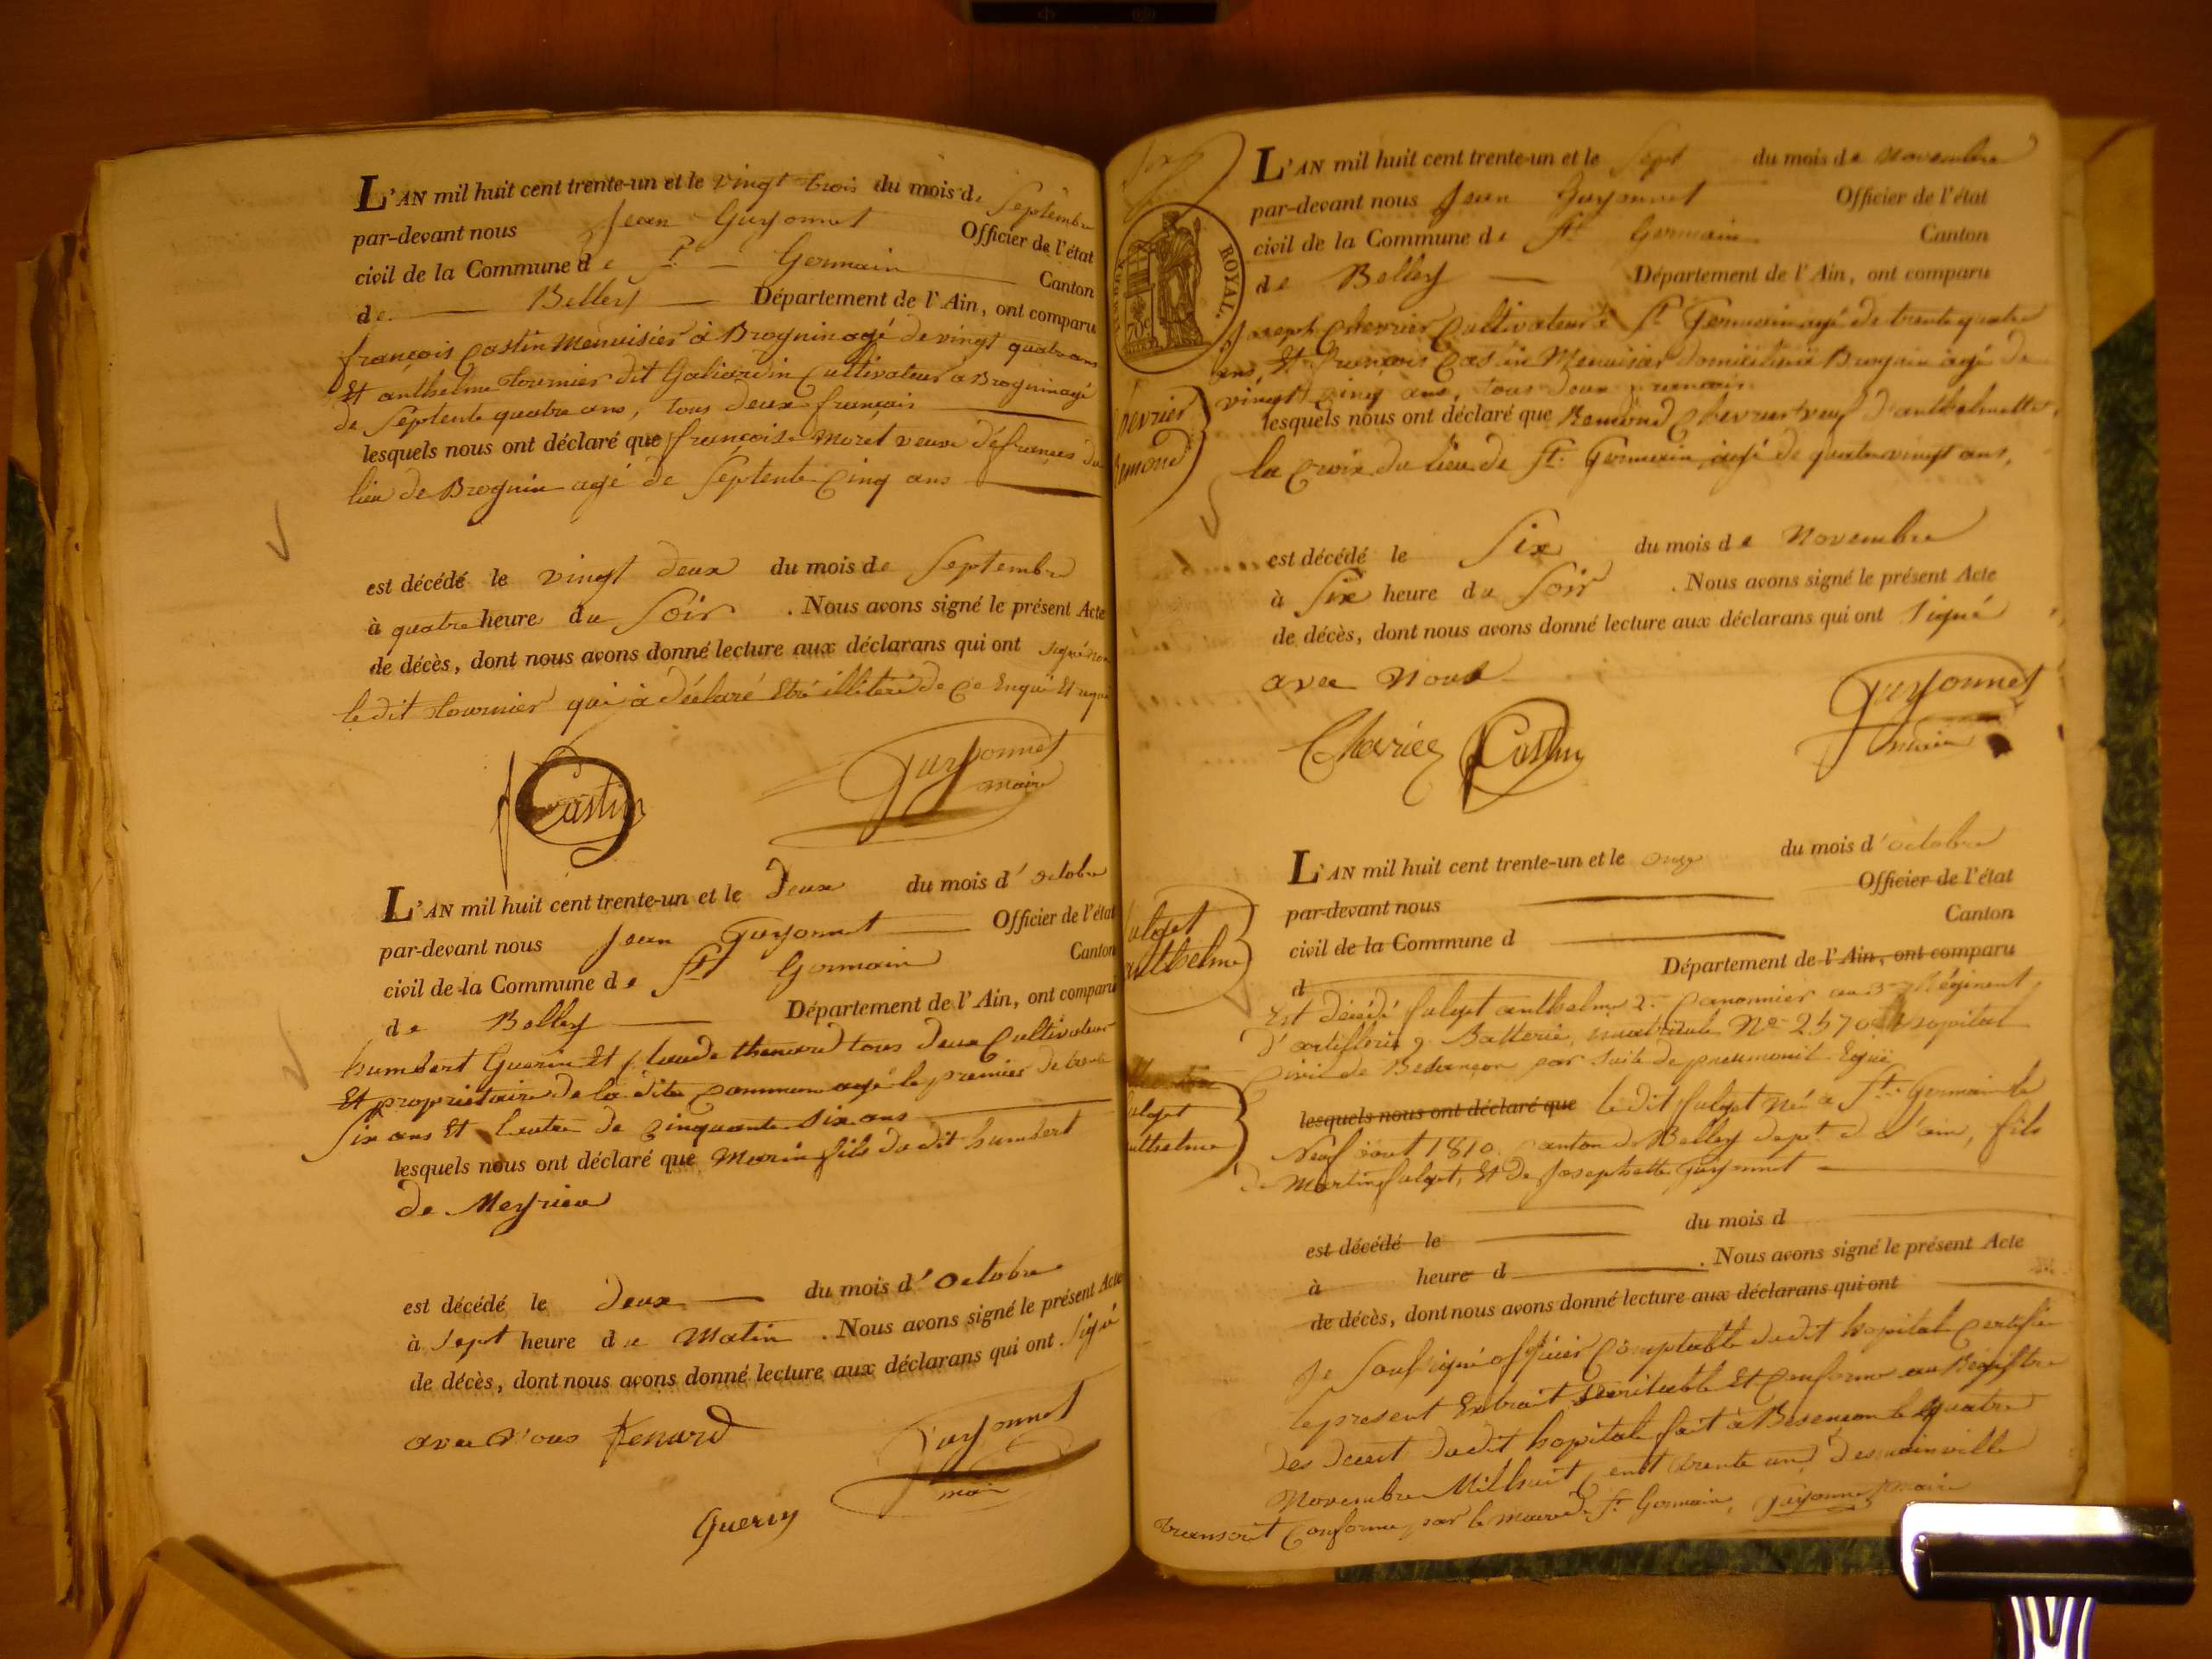 L'AN mil huit cent trente-un et le vingt trois du mois de Septembre
par-devant nous Jean Guyonnet Officier de l'état
civil de la Commune de St Germain Canton
de Belley Département de l'Ain, ont comparu
françois Castin Menuisier à Brognin agé de vingt quatre ans
Et anthelme tournier dit Galiardin Cultivateur a Brognin agé
de Septente quatre ans, tous deux français
lesquels nous ont déclaré que françoise Moret veuve
lieu de Brognin agé de Septente Cinq ans
est décédé le vingt deux du mois de Septembre
à quatre heure du Soir . Nous avons signé le présent Acte
de décès, dont nous avons donné lecture aux déclarans qui ont signé non
le dit tournier qui à déclaré Etre illiteré de Ce Enquis Et requi
Castin
Guyonnet
maire
L'AN mil huit cent trente-un et le Deux du mois d'octobre
par-devant nous Jean Guyonnet Officier de l'état
civil de la Commune de St Germain Canton
de Belley Département de l'Ain, ont comparu
humbert Guerin Et Claude thenard tous deux Cultivateur
Et propriétaire de la dite Commune agé le premier de trente
Six ans Et l'autre de Cinquante Six ans
lesquels nous ont déclaré que Marin fils du dit humbert
de Meyrieu
est décédé le deux du mois d'Octobre
à Sept heure de Matin . Nous avons signé le présent Acte
de décès, dont nous avons donné lecture aux déclarans qui ont Signé
avec Nous tenard
Guyonnet
maire
Guerin
ROYAL.
70c
L'AN mil huit cent trente-un et le Sept du mois de Novembre
par-devant nous Jean Guyonnet Officier de l'état
civil de la Commune de St Germain Canton
de Belley Département de l'Ain, ont comparu
Joseph Chevrier Cultivateur à St Germain agé de trente quatre
ans, Et françois Castin Menuisier domicilié à Brognin agé de
vingt Cinq ans, tous deux francais
lesquels nous ont déclaré que Remond Chevrier veuf d'anthelmette
la Croix du lieu de St Germain, agé de quatre vingt ans,
est décédé le Six du mois de Novembre
à Six heure du Soir . Nous avons signé le présent Acte
de décès, dont nous avons donné lecture aux déclarans qui ont Signé
avec Nous
Chevrier Castin
Guyonnet
maire
L'AN mil huit cent trente-un et le onze du mois d'octobre
par-devant nous Officier de l'état
civil de la Commune d Canton
d Département de l'Ain, ont comparu
Est décédé anthelme 2e Canonnier au 3e Régiment
d'artillerie, 9 Batterie, matricule No 2570 hopital
Civil de Besançon par Suite de pneumonie
lesquels nous ont déclaré que ledit Né a St Germain le
Neuf aout 1810 Canton de Belley dept de l'ain, fils
de Martin Et de Josephette Guyonnet
est décédé le du mois d
à heure d . Nous avons signé le présent Acte
de décès, dont nous avons donné lecture aux déclarans qui ont
Je Soussigné officier Comptable dudit hopital Certifie
le present Extrait veritable Et Conforme au Registre
des deces dudit hopital fait à Besançon le quatre
Novembre Mil huit Cent trente un,
transcrit Conforme par le maire de St Germain, Guyonnet maire